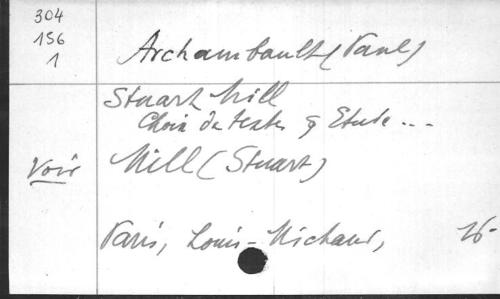 304
156
1
Archambault (Paul)
Stuart Mill
Choix de textes & Etude ...
Voir Mill (Stuart)
Paris, Louis-Michaud, 16-